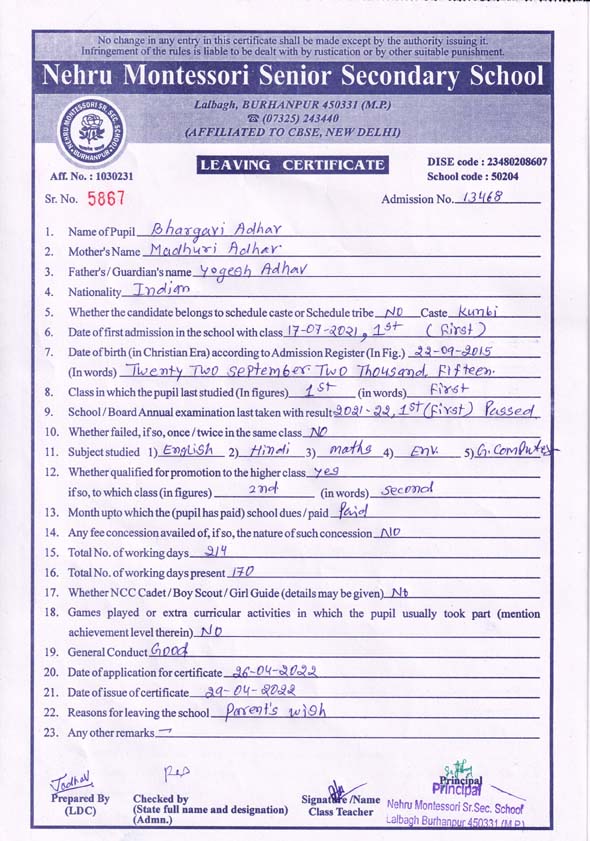 No change in any entry in this certificate shall be made except by the authority issuing it.
Infringement of the rules is liable to be dealt with by rustication or by other suitable punishment.
Nehru Montessori Senior Secondary School
Lalbagh, BURHANPUR 450331 (M.P.)
☎ (07325) 243440
(AFFILIATED TO CBSE, NEW DELHI)
NEHRU MONTESSORI SR. SEC. SCHOOL
BURHANPUR
LEAVING CERTIFICATE
DISE code : 23480208607
Aff. No. : 1030231
School code : 50204
Sr. No. 5867
Admission No. 13468
1. Name of Pupil Bhargavi Adhav
2. Mother's Name Madhuri Adhav
3. Father's / Guardian's name Yogesh Adhav
4. Nationality Indian
5. Whether the candidate belongs to schedule caste or Schedule tribe NO Caste Kunbi
6. Date of first admission in the school with class 17-07-2021, 1st (First)
7. Date of birth (in Christian Era) according to Admission Register (In Fig.) 22-09-2015
(In words) Twenty Two September Two Thousand Fifteen.
8. Class in which the pupil last studied (In figures) 1st (in words) First
9. School / Board Annual examination last taken with result 2021-22, 1st (First) Passed
10. Whether failed, if so, once / twice in the same class NO
11. Subject studied 1) English 2) Hindi 3) maths 4) Env. 5) G. Computer
12. Whether qualified for promotion to the higher class yes
if so, to which class (in figures) 2nd (in words) Second
13. Month upto which the (pupil has paid) school dues / paid Paid
14. Any fee concession availed of, if so, the nature of such concession NO
15. Total No. of working days 214
16. Total No. of working days present 170
17. Whether NCC Cadet / Boy Scout / Girl Guide (details may be given) No
18. Games played or extra curricular activities in which the pupil usually took part (mention
achievement level therein) NO
19. General Conduct Good
20. Date of application for certificate 26-04-2022
21. Date of issue of certificate 29-04-2022
22. Reasons for leaving the school Parent's wish
23. Any other remarks —
Jadhav
Prepared By
(LDC)
Checked by
(State full name and designation)
(Admn.)
Signature /Name
Class Teacher
Principal
Principal
Nehru Montessori Sr.Sec. School
Lalbagh Burhanpur 450331 (M.P.)